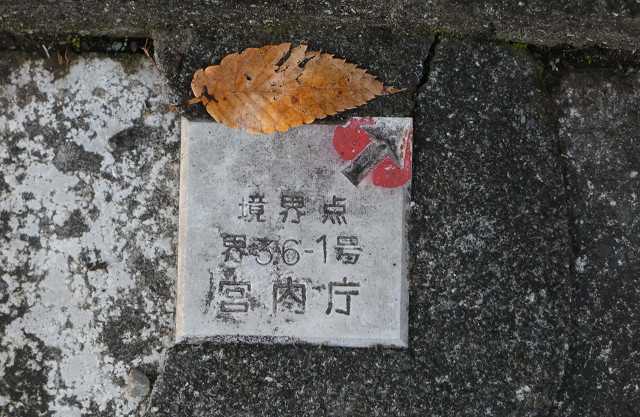 境界点
界36-1号
宮内庁